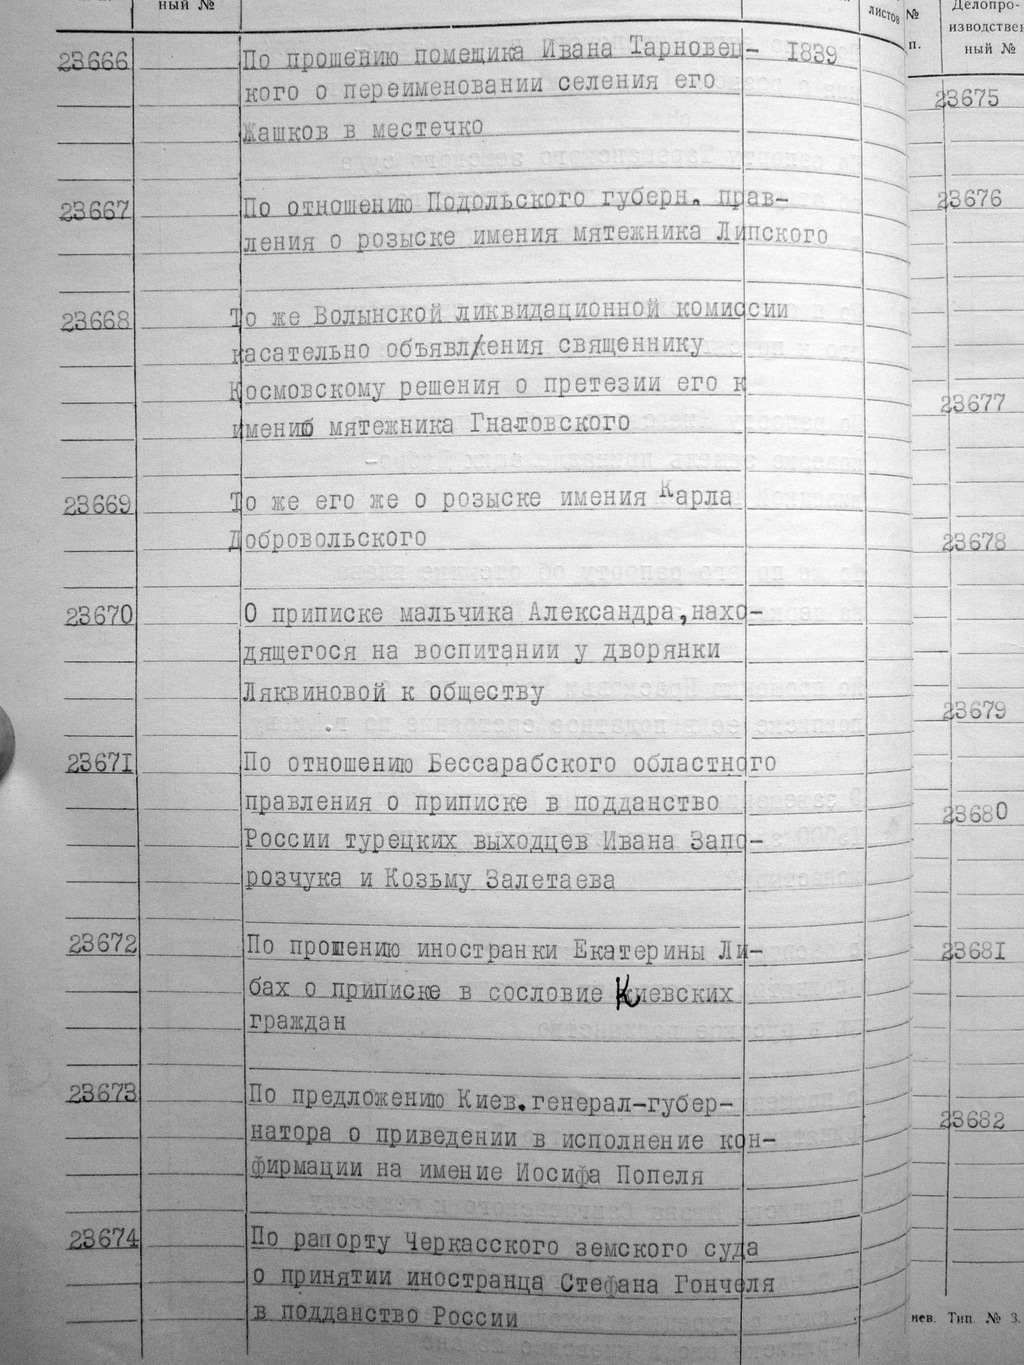 ный №
листов
23666 По прошению помещика Ивана Тарновец- 1839
кого о переименовании селения его
Жашков в местечко
23667 По отношению Подольского губерн. прав-
ления о розыске имения мятежника Липского
23668 То же Волынской ликвидационной комиссии
касательно объявления священнику
Космовскому решения о претезии его к
имению мятежника Гнатовского
23669 То же его же о розыске имения Карла
Добровольского
23670 О приписке мальчика Александра,нахо-
дящегося на воспитании у дворянки
Ляквиновой к обществу
23671 По отношению Бессарабского областного
правления о приписке в подданство
России турецких выходцев Ивана Запо-
розчука и Козьму Залетаева
23672 По прошению иностранки Екатерины Ли-
бах о приписке в сословие Киевских
граждан
23673 По предложению Киев.генерал-губер-
натора о приведении в исполнение кон-
фирмации на имение Иосифа Попеля
23674 По рапорту Черкасского земского суда
о принятии иностранца Стефана Гончеля
в подданство России
№
п.
Делопро-
изводствен
ный №
23675
23676
23677
23678
23679
23680
23681
23682
иев. Тип. № 3.